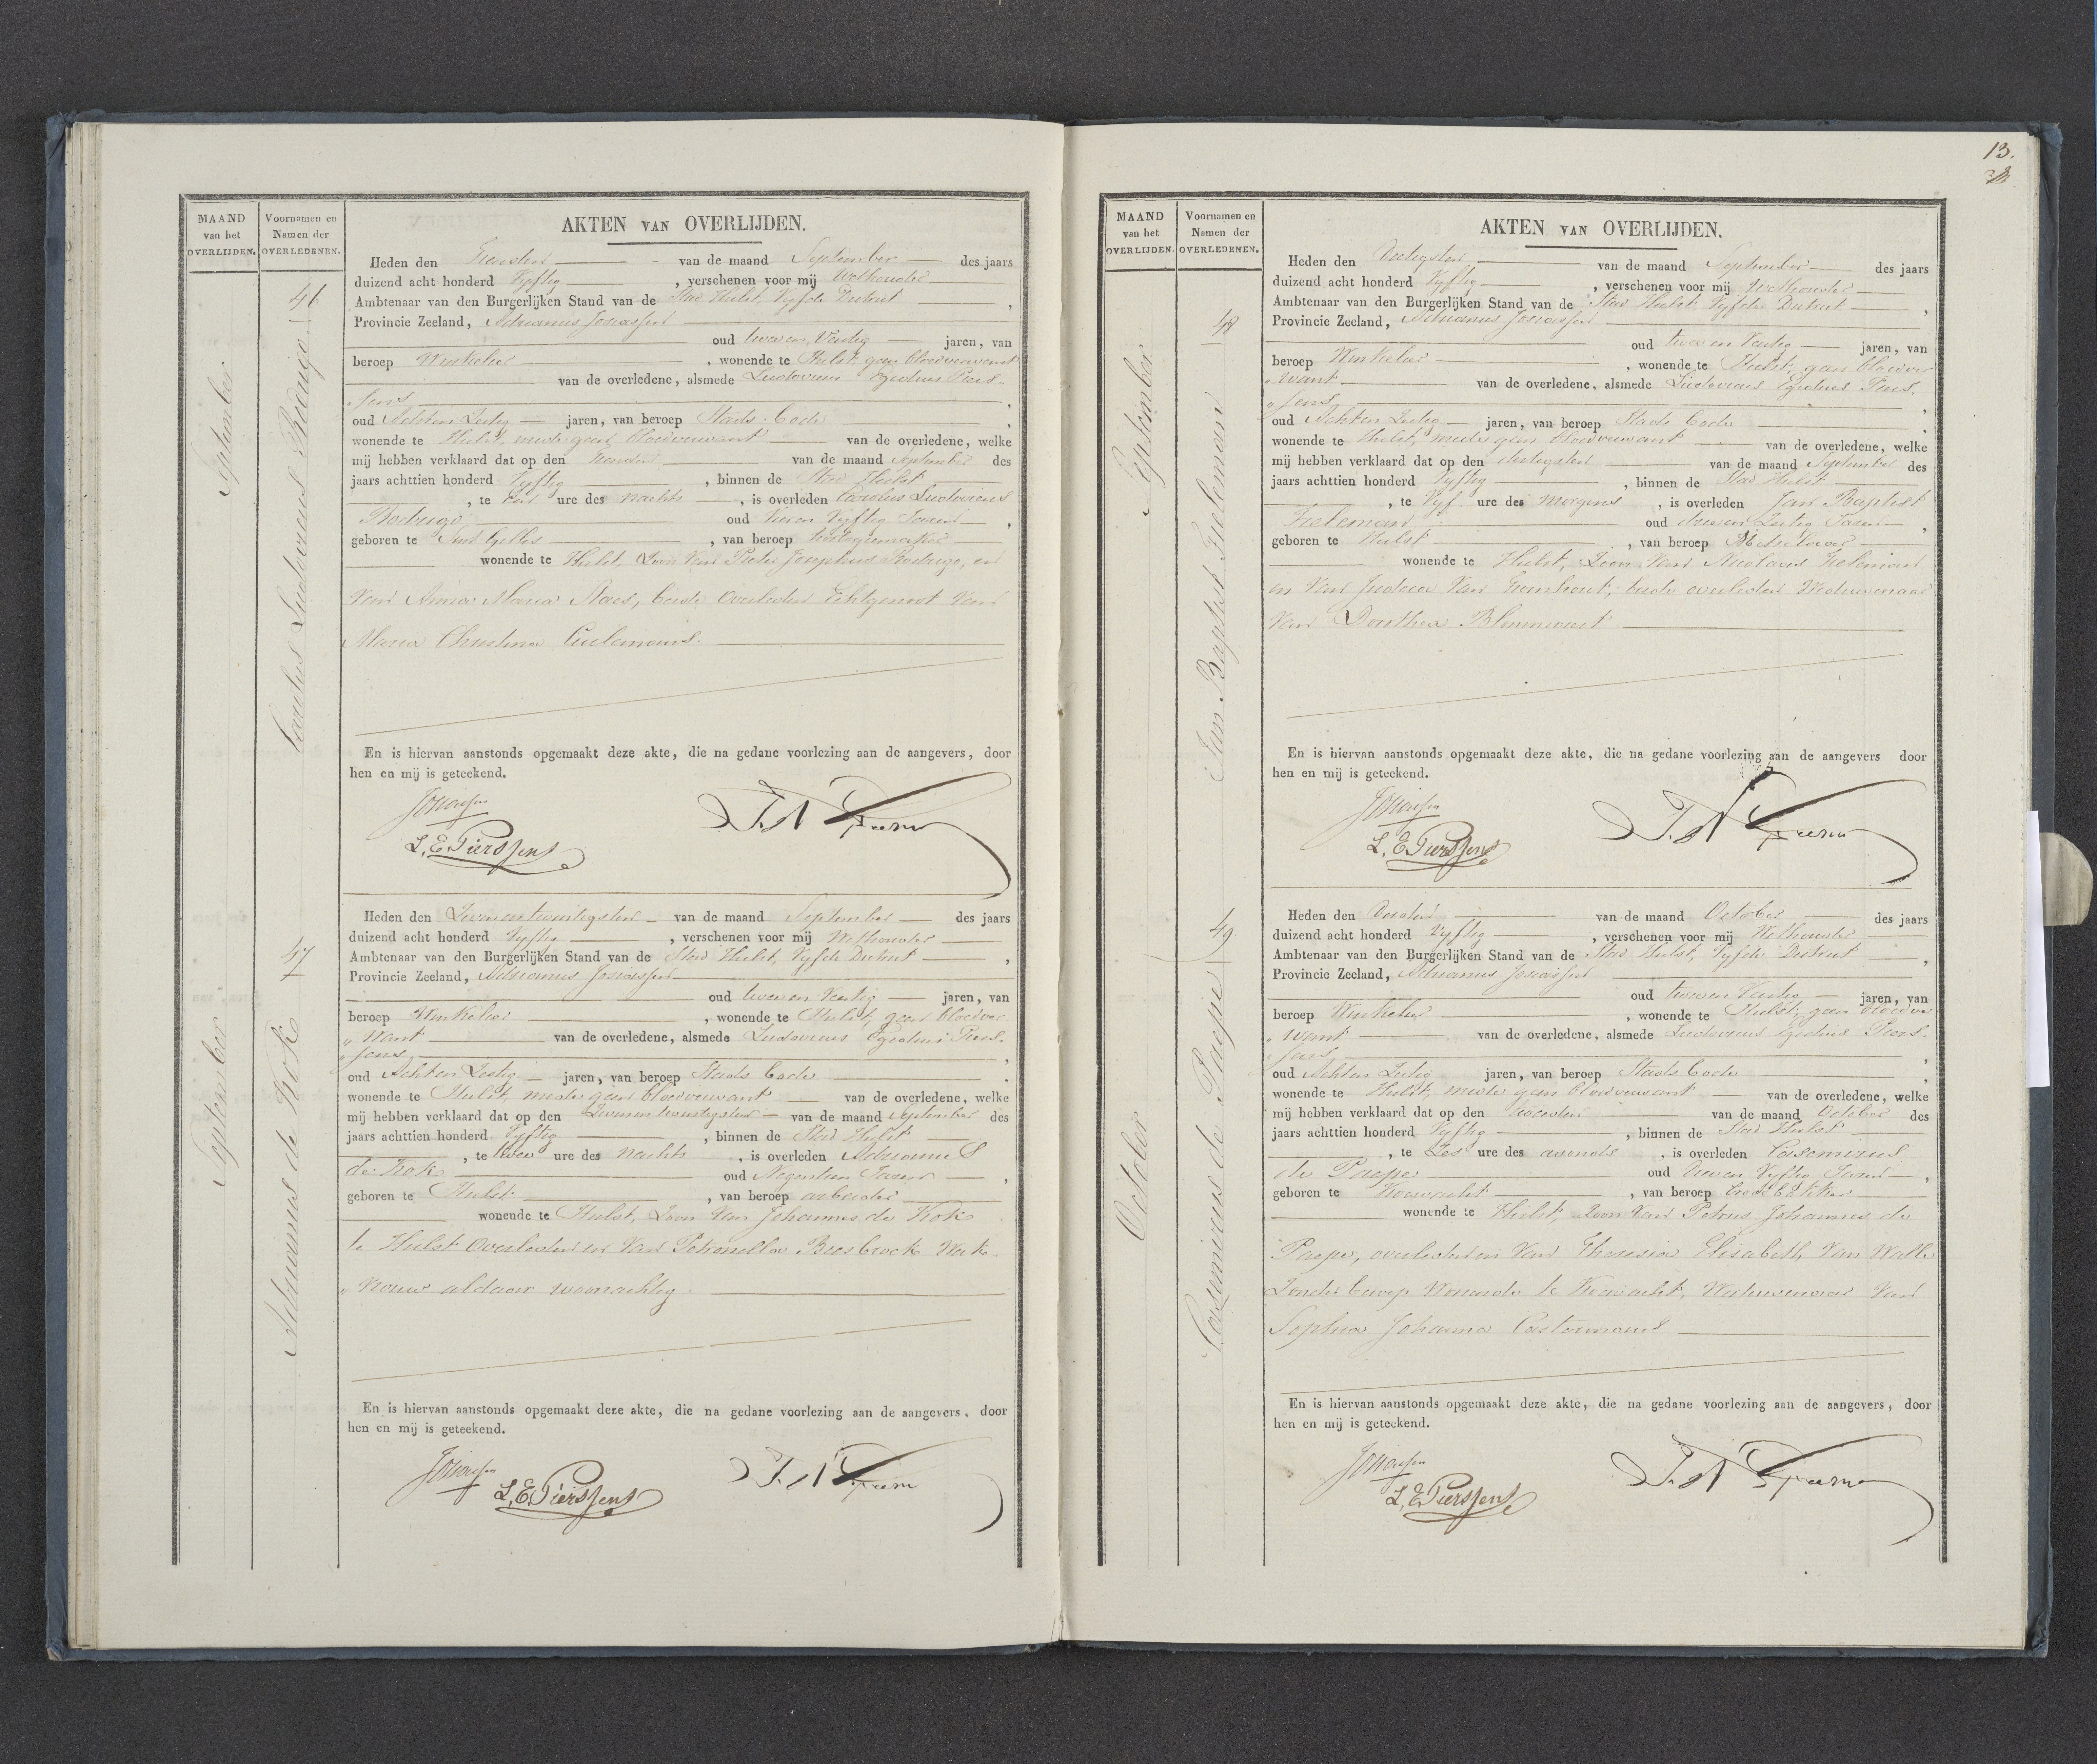 MAAND
van het
OVERLIJDEN.
Voornamen en
Namen der
OVERLEDENEN.
September
46
Carolus Ludovicus Rodrigo
September
47
Adrianus de Kok
AKTEN VAN OVERLIJDEN.
Heden den van de maand September des jaars
duizend acht honderd Vyftig, verschenen voor mij Wethouder
Ambtenaar van den Burgerlijken Stand van de Stad Hulst, Vyfde District,
Provincie Zeeland, Adrianus Josiassen
oud twee en Veertig jaren, van
beroep Winkelier, wonende te Hulst, geen bloedverwant
van de overledene, alsmede Ludovicus Egidius Piers-
„sens,
oud Acht en Zestig jaren, van beroep Stads bode
wonende te Hulst, mede geen bloedverwant van de overledene, welke
mij hebben verklaard dat op den van de maand September des
jaars achttien honderd Vyftig, binnen de Stad Hulst
, te een ure des nachts, is overleden Carolus Ludovicus
Rodrigo oud Vier en Vyftig Jaren,
geboren te Sint Gilles, van beroep horlogiemaker
wonende te Hulst, Zoon Van Pieter Josephus Rodrigo, en
Van Anna Maria Staes, beide Overleden Echtgenoot Van
Maria Christina Ceulemans.
En is hiervan aanstonds opgemaakt deze akte, die na gedane voorlezing aan de aangevers, door
hen en mij is geteekend.
Josiassen
L. E. Pierssens
Heden den Twee en twintigsten van de maand September des jaars
duizend acht honderd Vyftig, verschenen voor mij Wethouder
Ambtenaar van den Burgerlijken Stand van de Stad Hulst, Vyfde District,
Provincie Zeeland, Adrianus Josiassen
oud twee en Veertig jaren, van
beroep Winkelier, wonende te Hulst, geen bloedver
„want van de overledene, alsmede Ludovicus Egidius Piers-
„sens,
oud Acht en Zestig jaren, van beroep Stads bode
wonende te Hulst, mede geen bloedverwant van de overledene, welke
mij hebben verklaard dat op den Twee en twintigsten van de maand September des
jaars achttien honderd Vyftig, binnen de Stad Hulst
, te twee ure des nachts, is overleden Adrianus
de Kok oud Negentien Jaren,
geboren te Hulst, van beroep arbeider
wonende te Hulst, Zoon Van Johannes de Kok
te Hulst Overleden en Van Petronella Biesbrock Werk-
„vrouw aldaar woonachtig.
En is hiervan aanstonds opgemaakt deze akte, die na gedane voorlezing aan de aangevers, door
hen en mij is geteekend.
Josiassen
L. E. Pierssens
13.
MAAND
van het
OVERLIJDEN.
Voornamen en
Namen der
OVERLEDENEN.
September
48
Jan Baptist Tieleman
October
49
Casemirus de Paepe
AKTEN VAN OVERLIJDEN.
Heden den Dertigsten van de maand September des jaars
duizend acht honderd Vyftig, verschenen voor mij Wethouder
Ambtenaar van den Burgerlijken Stand van de Stad Hulst Vyfde District,
Provincie Zeeland, Adrianus Josiassen
oud twee en Veertig jaren, van
beroep Winkelier, wonende te Hulst, geen bloedver
„want van de overledene, alsmede Ludovicus Egidius Piers-
„sens,
oud Acht en Zestig jaren, van beroep Stads bode
wonende te Hulst, mede geen bloedverwant van de overledene, welke
mij hebben verklaard dat op den dertigsten van de maand September des
jaars achttien honderd Vyftig, binnen de Stad Hulst
, te Vyf ure des morgens, is overleden Jan Baptist
Tieleman oud drie en Zestig Jaren,
geboren te Hulst, van beroep Metselaar
wonende te Hulst, Zoon Van Nicolaus Tieleman
en Van Judoca Van beide overleden Weduwenaar
Van Dorothea
En is hiervan aanstonds opgemaakt deze akte, die na gedane voorlezing aan de aangevers door
hen en mij is geteekend.
Josiassen
L. E. Pierssens
Heden den Derden van de maand October des jaars
duizend acht honderd Vyftig, verschenen voor mij Wethouder
Ambtenaar van den Burgerlijken Stand van de Stad Hulst, Vyfde District,
Provincie Zeeland, Adrianus Josiassen
oud twee en Veertig jaren, van
beroep Winkelier, wonende te Hulst, geen bloedver
„want van de overledene, alsmede Ludovicus Egidius Piers-
„sens,
oud Acht en Zestig jaren, van beroep Stads bode
wonende te Hulst, mede geen bloedverwant van de overledene, welke
mij hebben verklaard dat op den tweeden van de maand October des
jaars achttien honderd Vyftig, binnen de Stad Hulst
, te Zes ure des avonds, is overleden Casemirus
de Paepe oud en Vyftig Jaren,
geboren te Koewacht, van beroep broodbakker
wonende te Hulst, Zoon Van Petrus Johannes de
Paepe, overleden en Van Theresia Elisabeth Van Walle
Zonder beroep Wonende te Koewacht, Weduwenaar Van
Sophia Johanna Castermans
En is hiervan aanstonds opgemaakt deze akte, die na gedane voorlezing aan de aangevers, door
hen en mij is geteekend.
Josiassen
L. E. Pierssens